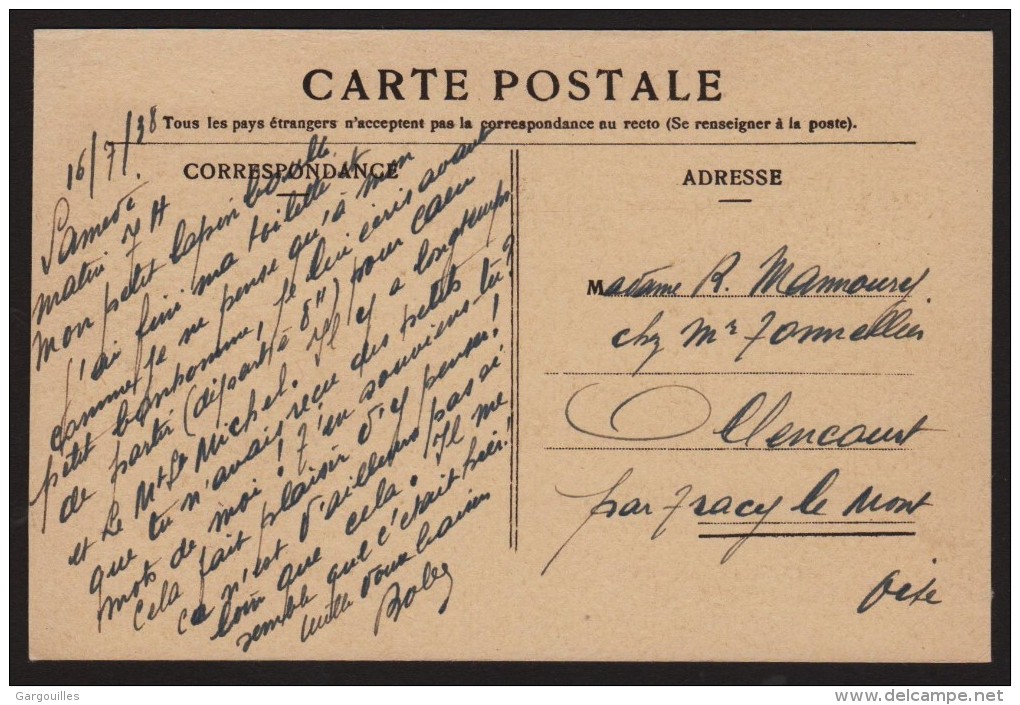 CARTE POSTALE
Tous les pays étrangers n'acceptent pas la correspondance au recto (Se renseigner à la poste).
CORRESPONDANCE
16/7/38
Samedi
matin 7 H
Mon petit lapin
J'ai fini ma toilette et
comme je ne pense qu'à mon
petit bonhomme, je lui écris avant
de partir (départ à 8H) pour Caen
et Le Mt St Michel. Il y a longtemps
que tu n'avais reçu des petits
mots de moi! T'en souviens-tu?
Cela fait plaisir d'y penser!
ce n'est d'ailleurs pas si
loin que cela. Il me
semble que c'était hier!
Mille doux
ADRESSE
Madame R. Mannoury
chez Mr
Ollencourt
par Tracy le Mont
Oise
Gargouilles
delcampe.net